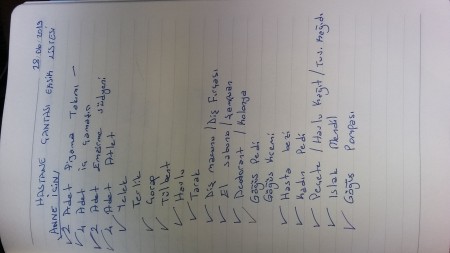 28.06.2019
HASTANE ÇANTASI EKSİK LİSTESİ
ANNE İÇİN
✓ 2 Adet Pijama Takımı –
✓ 4 Adet iç çamaşırı
✓ 2 Adet Emzirme südyeni
✓ 4 Adet Atlet
✓ Yelek
Terlik
✓ Çorap
✓ Tülbent
✓ Havlu
✓ Tarak
✓ Diş macunu / Diş Fırçası
✓ El sabunu / Şampuan
✓ Deodorant / Kolonya
✓ Göğüs Pedi
Göğüs Kremi
✓ Hasta bezi
✓ Kadın Pedi
✓ Peçete / Havlu Kağıt / Tuv. Kağıdı
✓ Islak Mendil
✓ Göğüs Pompası